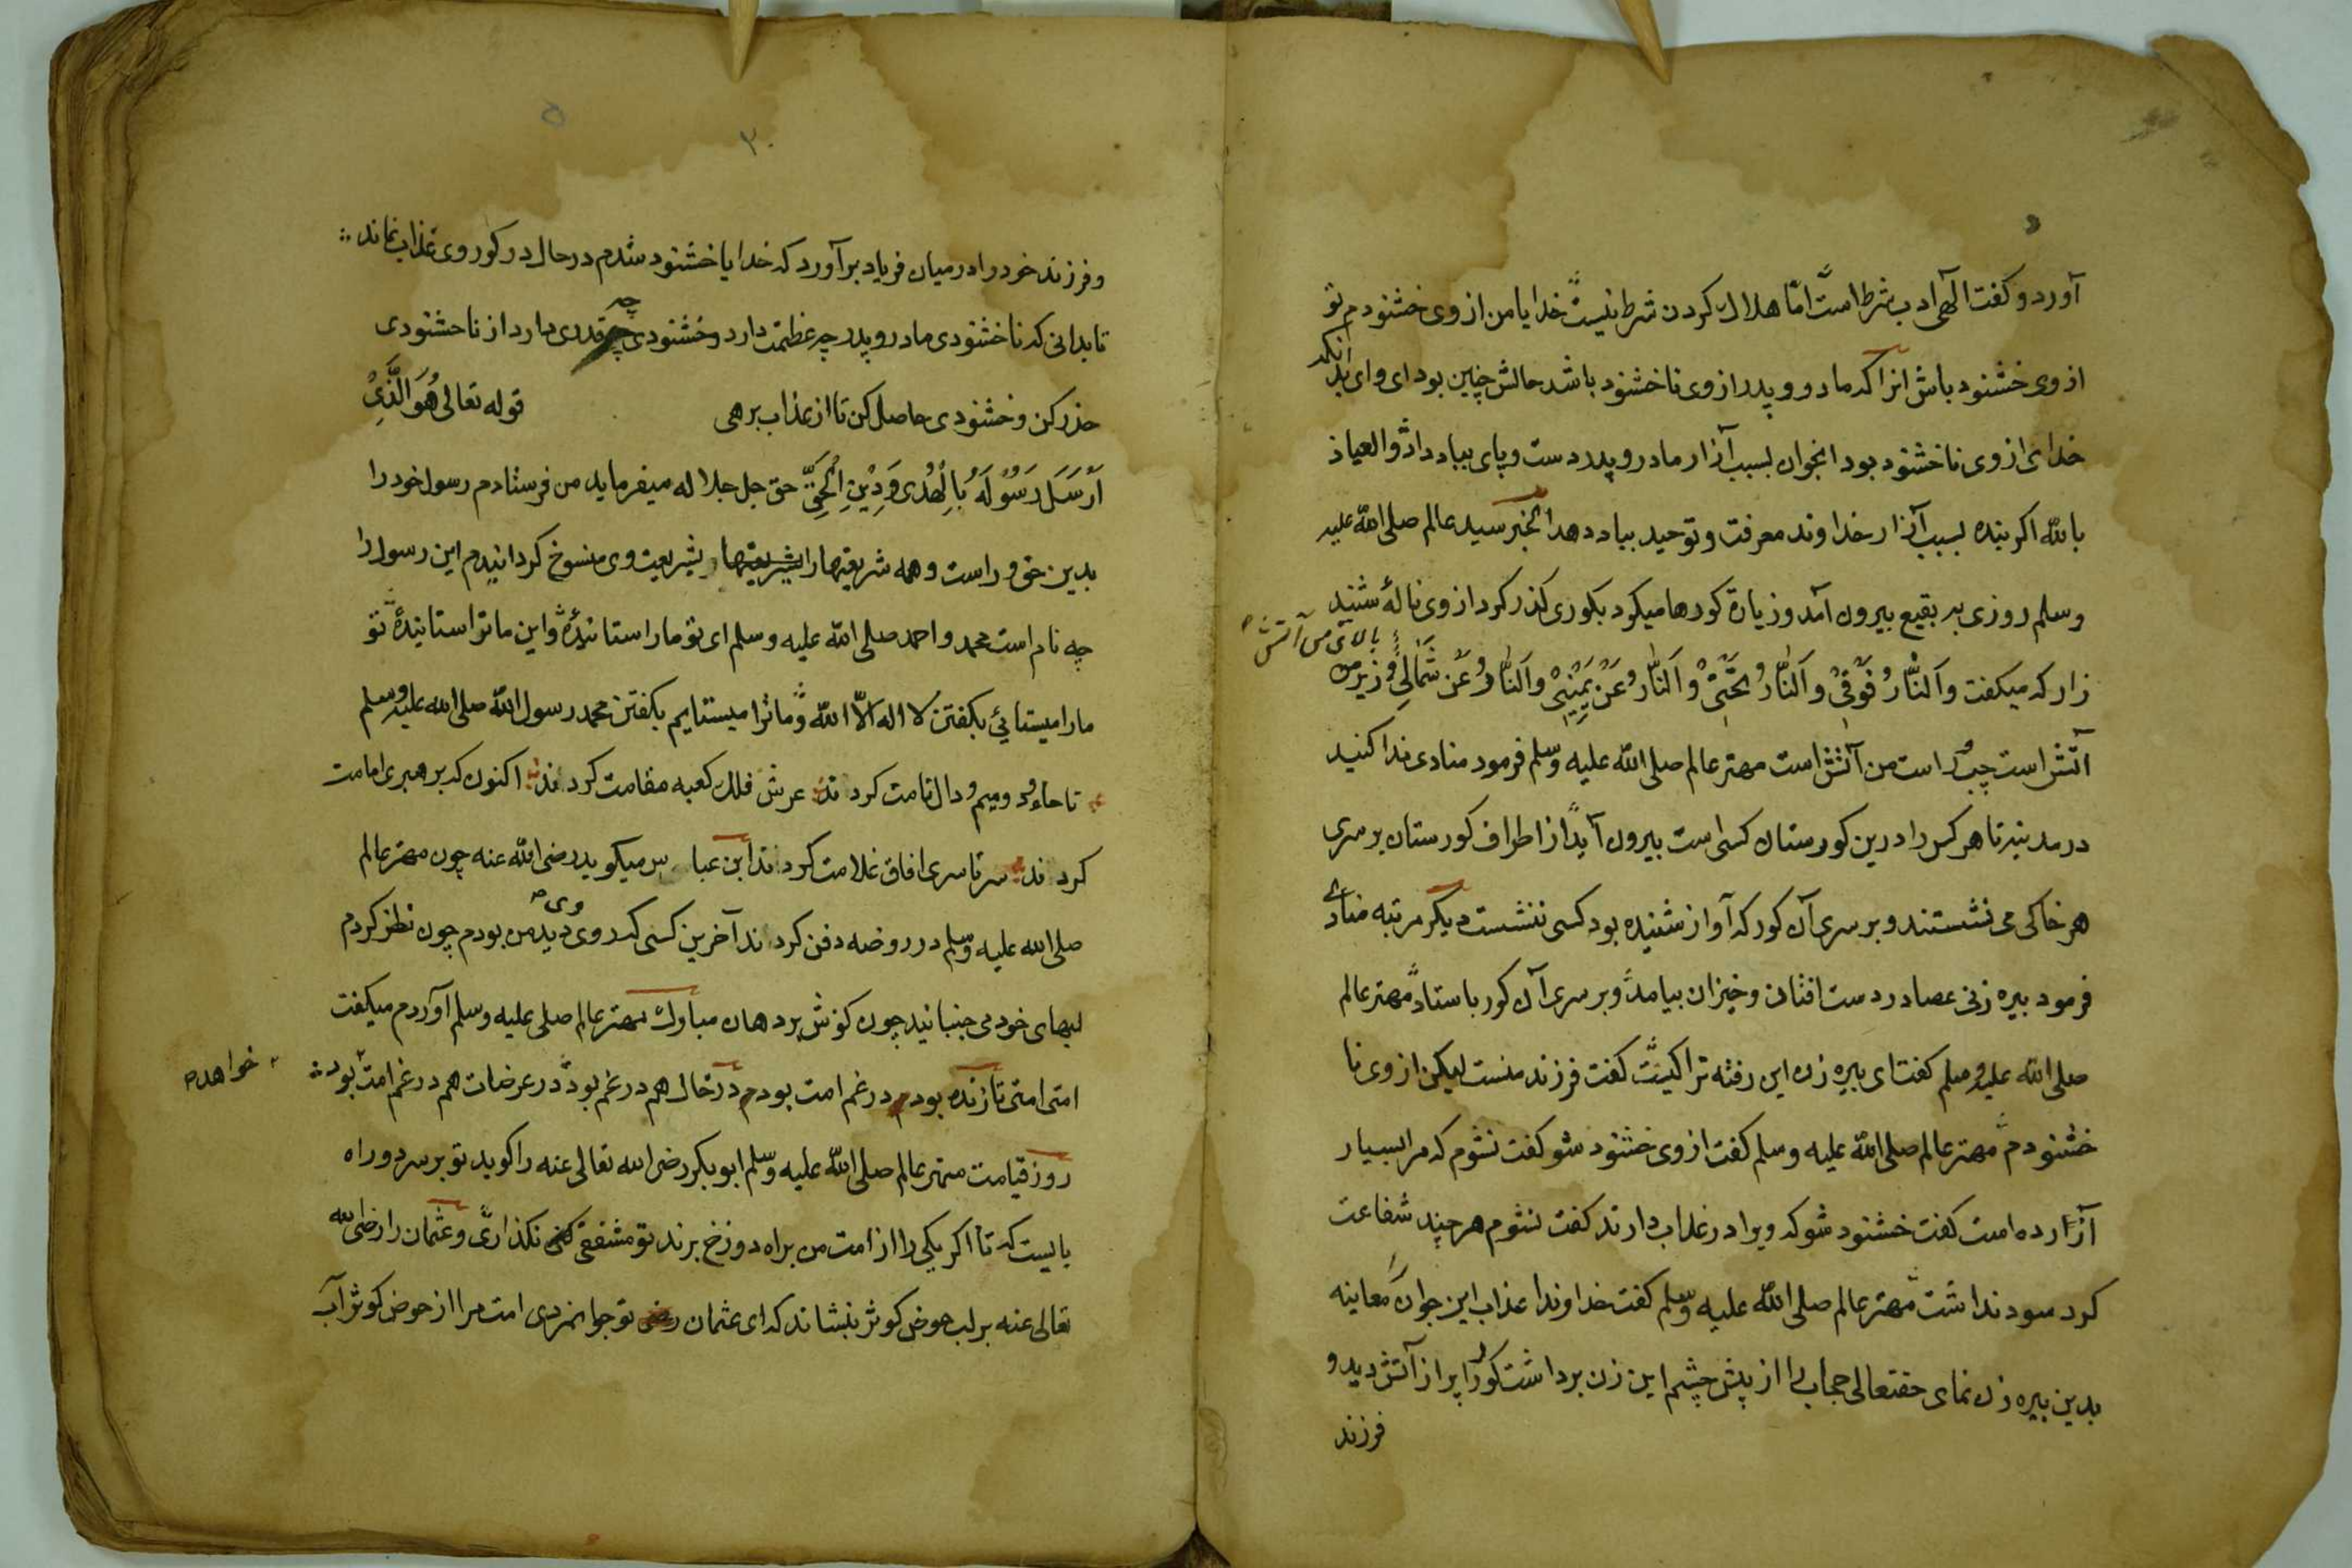 آورد و کفت الهی ادب شرط است امّا هلاک کردن شرط نیست خدایا من از وی خشنودم تو
از وی خشنود باش انرا که مادر و پدر از وی ناخشنود باشد حالش چنین بود ای وای بدانکه
خدای از وی ناخشنود بود انجوان بسبب آزار مادر و پدر دست و پای بباد داد والعیاذ
بالله اکر بنده بسبب آزار خداوند معرفت و توحید بباد دهد الخبر سید عالم صلی الله علیه
وسلم روزی به بقیع بیرون آمد و زیارة کورها میکرد بکوری کذر کرد از وی نالهٔ شنید
بالای من آتش
زار که میکفت وَالنَّارُ فَوْقِیْ وَالنَّارُ تَحْتِیْ وَالنَّارُ عَنْ یَمِیْنِیْ وَالنَّارُ عَنْ شَمَالِیْ و زیر من
آتش است چپ و راست من آتش است مهتر عالم صلی الله علیه وسلم فرمود منادی ندا کنید
در مدینه تا هر کس را درین کورستان کسی است بیرون آید از اطراف کورستان بر سری
هر خاکی می نشستند و بر سری آن کور که آواز شنیده بود کسی ننشست دیکر مرتبه منادی
فرمود بیره زنی عصا در دست افتان و خیزان بیامد و بر سری آن کور باستاد مهتر عالم
صلی الله علیه وسلم کفت ای بیره زن این رفته ترا کیست کفت فرزند منست لیکن از وی نا
خشنودم مهتر عالم صلی الله علیه وسلم کفت از وی خشنود شو کفت نشوم که مرا بسیار
آزارده است کفت خشنود شو که ویرا در عذاب دارند کفت نشوم هر چند شفاعت
کرد سود نداشت مهتر عالم صلی الله علیه وسلم کفت خداوندا عذاب این جوان معاینه
بدین بیره زن نمای حقتعالی حجاب را از پیش چشم این زن برداشت کور را پر از آتش دید و
فرزند
۳۰
و فرزند خود را در میان فریاد برآورد که خدایا خشنود شدم در حال در کور وی عذاب نماند
تا بدانی که ناخشنودی مادر و پدر چه عظمت دارد و خشنودی چه قدری دارد از ناخشنودی
حذر کن و خشنودی حاصل کن تا از عذاب برهی قوله تعالی هُوَ الَّذِیْ
اَرْسَلَ رَسُوْلَهُ بِالْهُدٰی وَدِیْنِ الْحَقِّ حق جل جلاله میفرماید من فرستادم رسول خود را
بدین حق و راست و همه شریعتها را بشریعتها بشریعت وی منسوخ کردانیدم این رسول را
چه نام است محمد و احمد صلی الله علیه وسلم ای تو مارا ستانیدهٔ و این ما ترا ستانیدهٔ تو
مارا میستائی بکفتن لا اله الّا الله و ما ترا میستایم بکفتن محمد رسول الله صلی الله علیه وسلم
تا حاء و میم و دال نامت کردند عرش فلک کعبه مقامت کردند اکنون که برهبری امامت
کردند سر تا سری افاق غلامت کردند ابن عباس میکوید رضی الله عنه چون مهتر عالم
صلی الله علیه وسلم در روضه دفن کردند آخرین کسی که روی وی دید من بودم چون نظر کردم
لبهای خود می جنبانید چون کوش بر دهان مبارک مهتر عالم صلی علیه وسلم آوردم میکفت
امتی امتی تا زنده بودم در غم امت بودم در خاک هم در غم بود در عرضات هم در غم امت بود
خواهد
روز قیامت مهتر عالم صلی الله علیه وسلم ابوبکر رضی الله تعالی عنه را کوید تو بر سر دو راه
بایست که تا اکر یکی را از امت من براه دوزخ برند تو مشفقی کنی نکذاری و عثمان را رضی الله
تعالی عنه بر لب حوض کوثر بنشاند که ای عثمان رض تو جوانمردی امت مرا از حوض کوثر آب